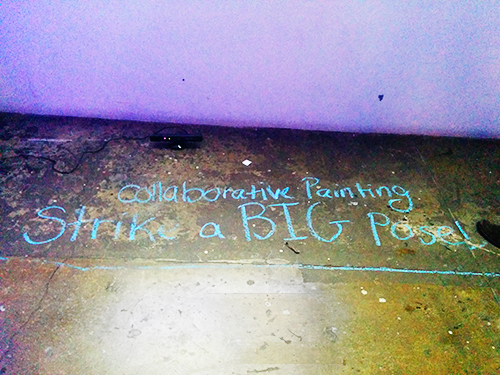 collaborative Painting
Strike a BIG Pose!